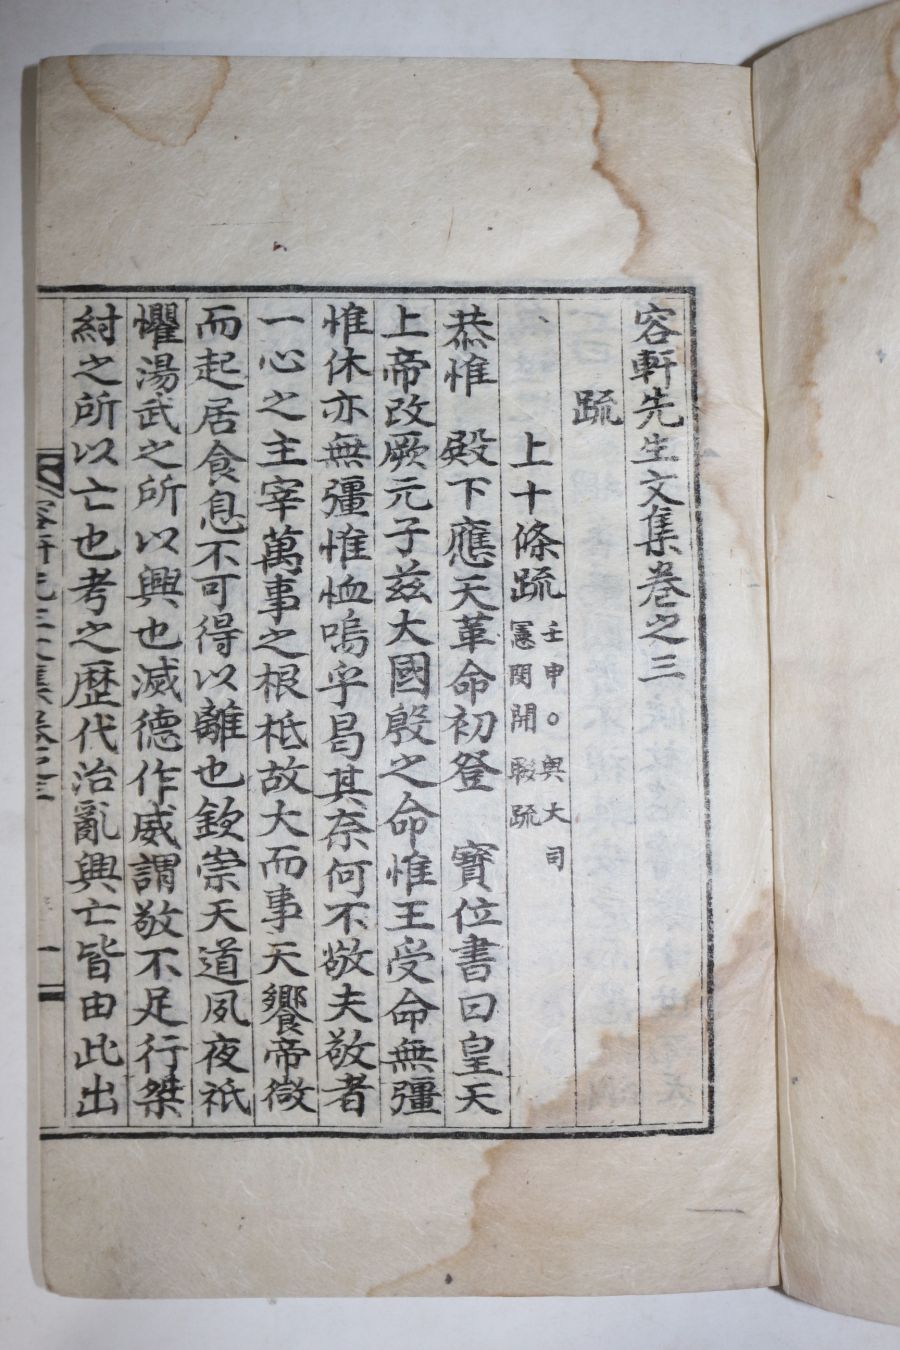 容軒先生文集卷之三
疏
上十條疏 壬申○與大司
憲閔開聯疏
恭惟 殿下應天革命初登 寶位書曰皇天
上帝改厥元子玆大國殷之命惟王受命無彊
惟休亦無彊惟恤嗚乎曷其奈何不敬夫敬者
一心之主宰萬事之根柢故大而事天饗帝微
而起居食息不可得以離也欽崇天道夙夜祇
懼湯武之所以興也滅德作威謂敬不足行桀
紂之所以亡也考之歷代治亂興亡皆由此出
容軒先生文集卷之三
一